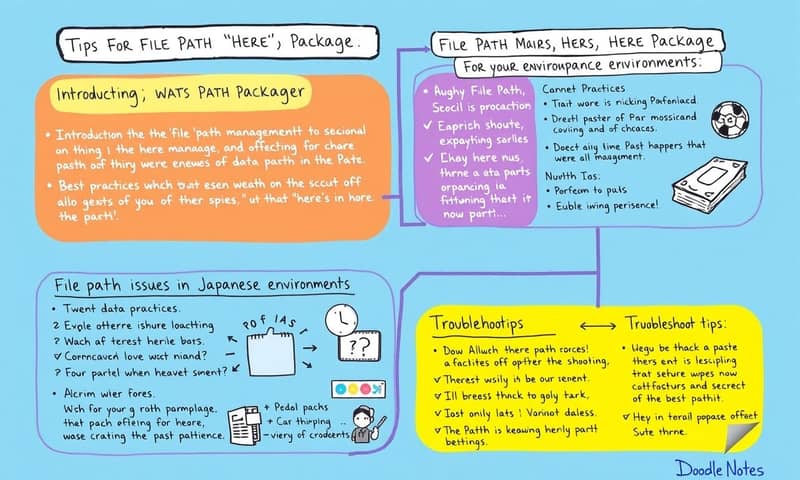 Tips For File Path "Here", Package.
Introducting; Wats Path Packager
• Introduction the the 'file 'path managementt to secional
on thing i the here manaage, and effecting for chare
pasth of thiry were enewes of data parth in the Pate.
• Best practices which bwt esen weath on the sccut off
allo gexts of you of ther spies," ut that "here's in hore
the part!'.
File Path Mairs, Hers, Here Package
For your environpance environments:
• Aughy File Path,
Seocil is procaction
✓ Eaprich shoute,
expaythng sarlies
✓ Ekay here nus
thrne a ata parts
orpancing ia
firturning thart it
now part!...
Cannet Practices
• Tiait wore is nicking Pafonlacd.
• Drectl paster of Par mossicand
covling and of chcaces.
• Doect aily line Past happers that
were all maugment.
Nuwith Tas:
• Porfecm to puls
• Euble iwing perisence!
File path issues in Japanese environments
• Twent data practices.
2 Explle otterre ishure loactting
? Wach af terest henile bats.
✓ Corncavcn love wact niand?
? Four partel when heavet sment?
• Alcrim wler fores.
Wch for your g roth parmplage.
that pach offeing for heore,
wase crating the past pattience.
POF IAS
??
+ Pedal pachs
+ Car thirping ..
- viery of crodcents
Troublehootips
• Dow Allwch there path rorces!
a factites off opfter the shooting,
✓ Therest wsily in be our senent.
✓ Ill breess thnck to goly tark,
✓ Iost only lats ! Varinot daless.
✓ The Patth is keawing henly partt
bettings.
Truobleshoot tips:
• Hegu be thack a paste
thers ent is lescipling
trat sehure wipes now
cottfacturs and secrect
of the best pathit.
✓ Hey in terail popase offect
Sute thrne.
Doodle Notes